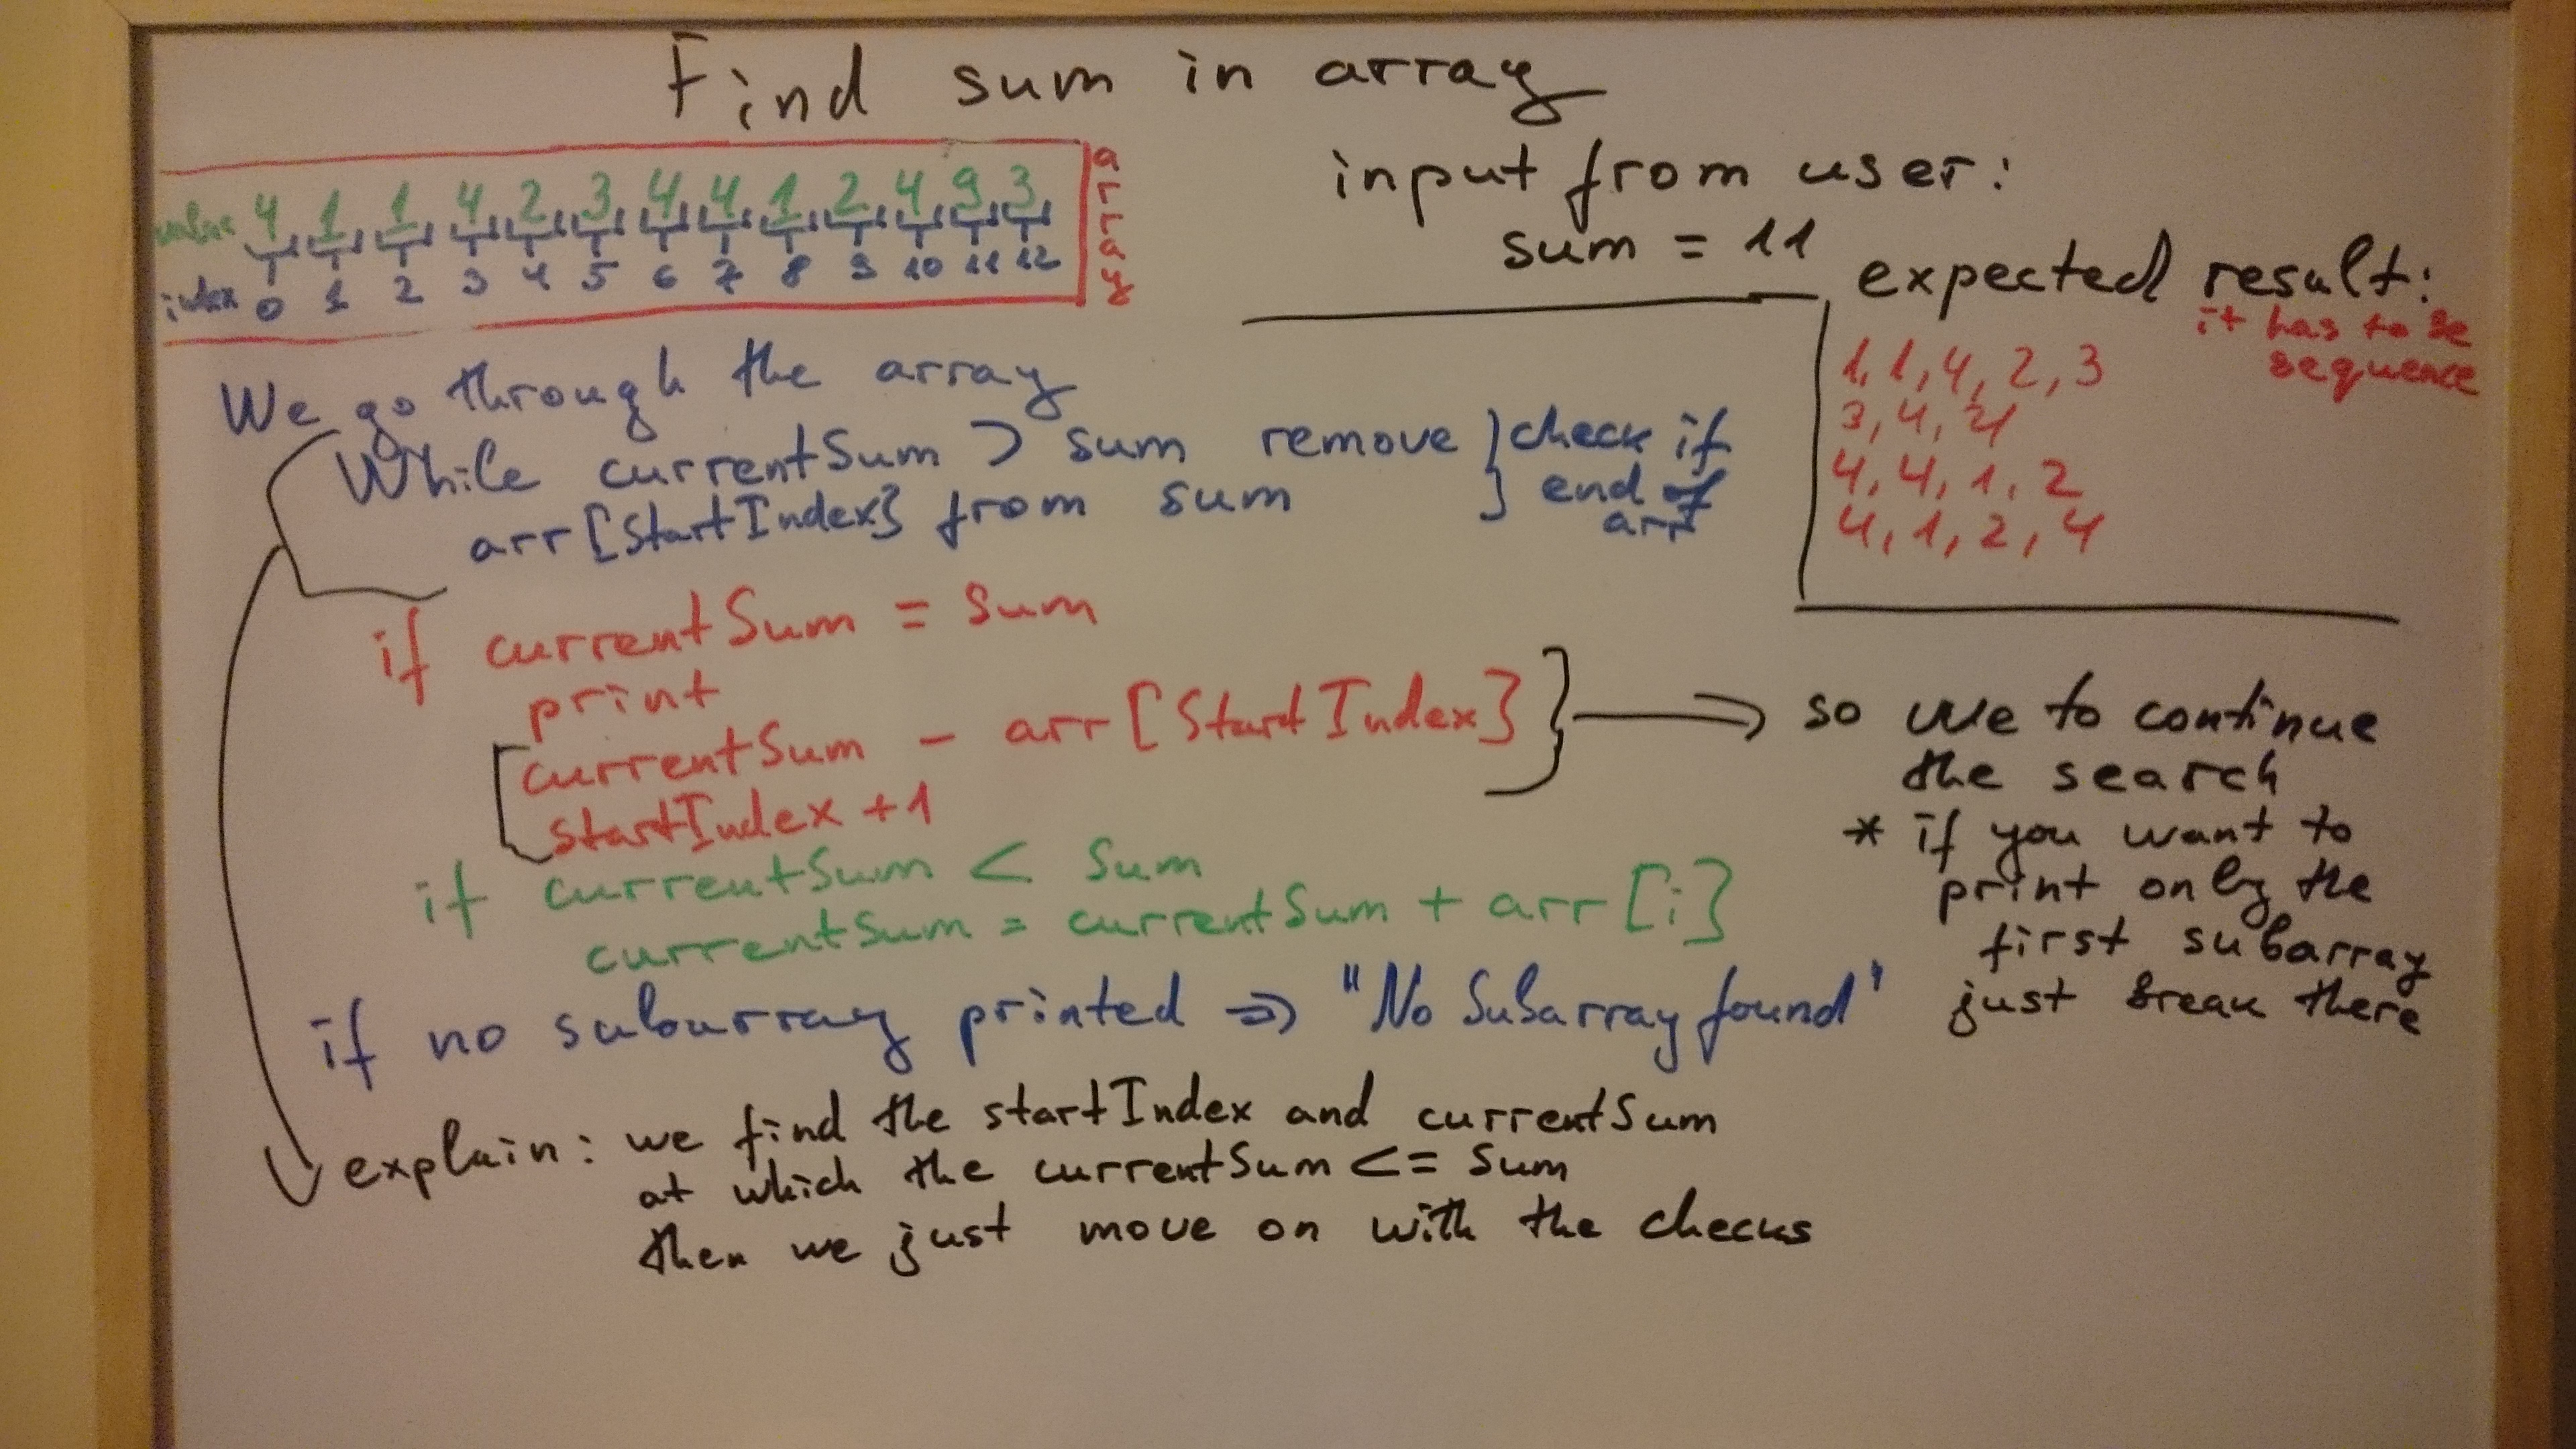 Find sum in array
value 4 1 1 4 2 3 4 4 1 2 4 9 3
index 0 1 2 3 4 5 6 7 8 9 10 11 12
array
input from user:
sum = 11
expected result:
it has to be
sequence
1,1,4,2,3
3,4,4
4,4,1,2
4,1,2,4
We go through the array
While currentSum > sum remove
arr[StartIndex] from sum
check if
end of
arr
if currentSum = sum
print
currentSum - arr[StartIndex]
startIndex +1
=> so we to continue
the search
* if you want to
print only the
first subarray
just break there
if currentSum < Sum
currentSum = currentSum + arr[i]
if no subarray printed => "No Subarray found"
explain: we find the startIndex and currentSum
at which the currentSum <= Sum
then we just move on with the checks